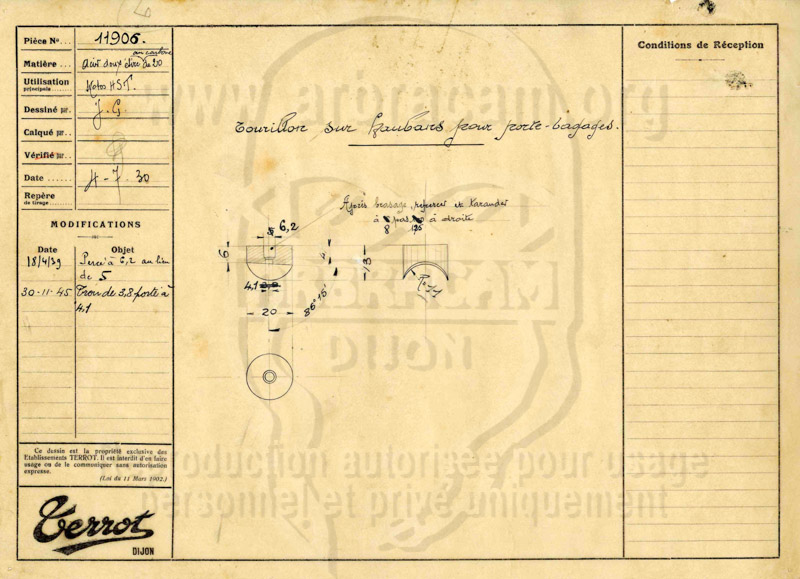 Pièce No... 11906.
Matière... Acier doux étiré de 20
au carbone
Utilisation
principale...... Motos HST.
Dessiné par. J. G.
Calqué par..
Vérifié par..
Date ...... 4-7.30
Repère
de tirage......
MODIFICATIONS
Date Objet
18/4/39 Percé à 6,2 au lieu
de 5
30-11-45 Trou de 3,8 porté à
4,1
Ce dessin est la propriété exclusive des
Etablissements TERROT. Il est interdit d'en faire
usage ou de le communiquer sans autorisation
expresse.
(Loi du 11 Mars 1902.)
Terrot
DIJON
www.arbracam.org
Tourillon sur haubans pour porte-bagages.
Après brasage, repercer et tarauder
à pas à droite
8 125
6,2
6
4,1
20
86°15'
13
ARBRACAM
DIJON
Reproduction autorisée pour usage
personnel et privé uniquement
Conditions de Réception